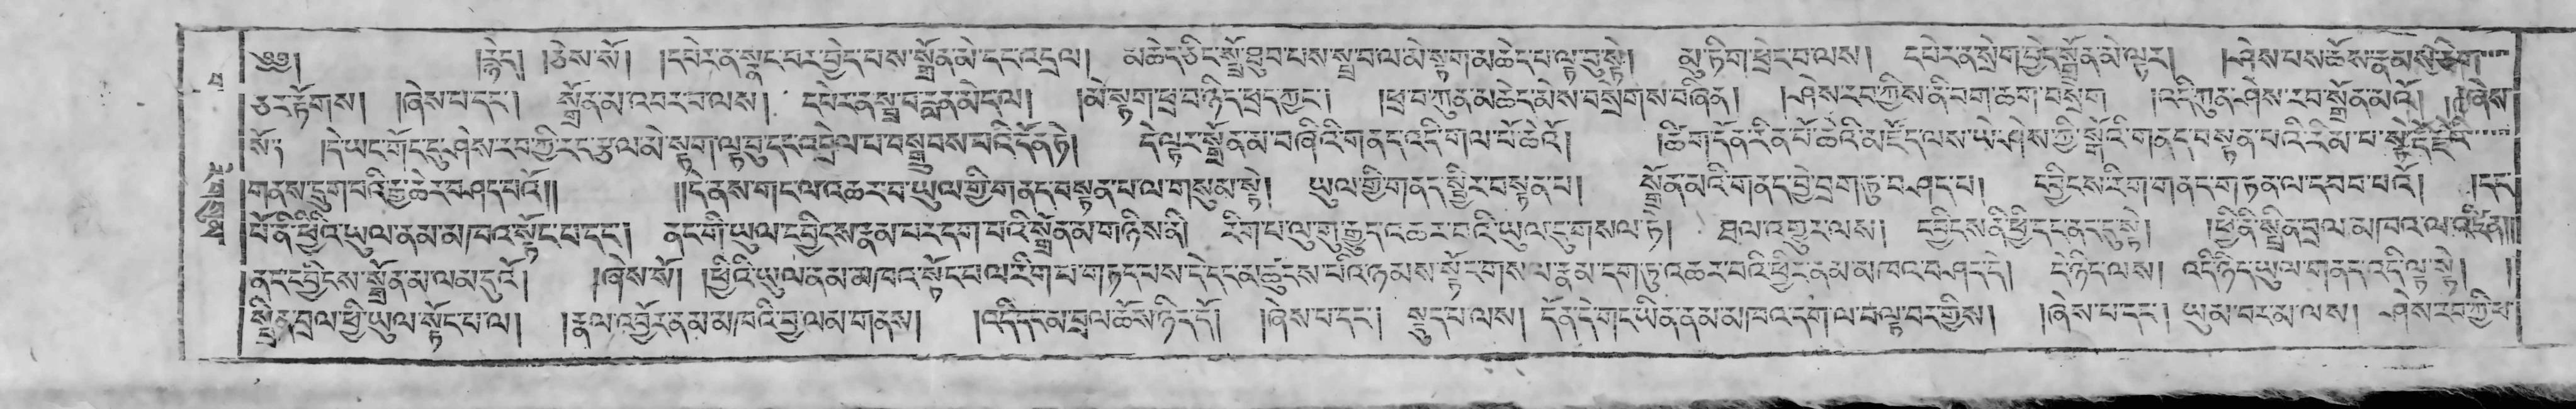 ༄༅། །རྙེད། །ཅེས་སོ། །དཔེར་ན་སྣང་བར་བྱེད་པས་སྒྲོན་མེ་དང་འདྲལ། མཆེད་ཅིང་སྤྲོ་ཐུབ་པས་སྤྲ་བལ་མེ་སྟག་མཆེད་པ་ལྟ་བུ་སྟེ། མུ་ཏིག་ཕྲེང་བ་ལས། དཔེར་ན་སྲེག་བྱེད་སྒྲོན་མེ་ལྟར། །ཤེས་པས་ཆོས་རྣམས་
ཅར་རྟོགས། །ཞེས་པ་དང་། སྒྲོན་མ་འབར་བ་ལས། དཔེར་ན་སྤྲ་བ་ །མེ་སྟག་ཕྲ་བ་ཉིད་ཕྲད་ཀྱང་། །ཕྲ་བ་ཀུན་མཆེད་མེས་བསྲེགས་བཞིན། །ཤེས་རབ་ཀྱིས་ནི་བག་ཆག་བསྲེག །འདི་ཀུན་ཤེས་རབ་སྒྲོན་མའོ། །ཞེས་
སོ། །དེ་ཡང་གོང་དུ་ཤེས་རབ་ཀྱི་རང་རྩལ་མེ་སྟག་ལྟ་བུ་དང་འབྲེལ་པ་བསྒྲུབས་པའི་དོན་ཏེ། དེ་ལྟར་སྒྲོན་མ་བཞིའི་གནད་འདི་གལ་པོ་ཆེའོ། །ཚིག་དོན་རིན་པོ་ཆེའི་མཛོད་ལས་ཡེ་ཤེས་ཀྱི་སྒོའི་གནད་བསྟན་པའི་རིམ་པ་སྟེ་རྡོ་རྗེའི་
གནས་དྲུག་པའི་རྒྱ་ཆེར་བཤད་པའོ།། །།དེ་ནས་གང་ལ་འཆར་བ་ཡུལ་གྱི་གནད་བསྟན་པ་ལ་གསུམ་སྟེ། ཡུལ་གྱི་གནད་སྤྱིར་བསྟན་པ། སྒྲོན་མའི་གནད་བྱེ་བྲག་ཏུ་བཤད་པ། དབྱིངས་རིག་གནད་གཏན་ལ་དབབ་པའོ། །དང་
པོ་ནི་ཕྱིའི་ཡུལ་ནམ་མ་ཁའ་སྟོང་པ་དང་། ནང་གི་ཡུལ་དབྱིངས་རྣམ་པར་དག་པའི་སྒྲོན་མ་གཉིས་ནི། རིག་པ་ལུ་གུ་རྒྱུད་འཆར་བའི་ཡུལ་དུ་གསལ་ཏེ། ཐལ་འགྱུར་ལས། དབྱིངས་ནི་ཕྱི་དང་ནང་དུ་སྟེ། །ཕྱི་ནི་སྤྲིན་བྲལ་མ་ཁའ་ལ་འདོན།།
ནང་དབྱིངས་སྒྲོན་མ་ལམ་དུའོ། །ཞེས་སོ། །ཕྱིའི་ཡུལ་ནམ་མ་ཁའ་སྟོང་པ་ལ་རིག་པ་གཏད་པས་དེ་དང་མཚུངས་པའི་ཉམས་སྟོང་གསལ་རྣམ་དག་ཏུ་འཆར་བའི་ཕྱིར་ནམ་མ་ཁའ་བཤད་དེ། དེ་ཉིད་ལས། འདི་ཉིད་ཡུལ་གནད་འདི་ལྟ་སྟེ། །
སྤྲིན་བྲལ་ཕྱི་ཡུལ་སྟོང་པ་ལ། །རྣལ་འབྱོར་ནམ་མ་ཁའི་བྱ་ལམ་གནས། །འདི་དང་མ་བྲལ་ཆོས་ཉིད་དོ། །ཞེས་པ་དང་། སྡུད་པ་ལས། དོན་དེ་གང་ཡིན་ནམ་མ་ཁའ་དག་ལ་བལྟ་བར་གྱིས། །ཞེས་པ་དང་། ཡུམ་བར་མ་ལས། ཤེས་རབ་ཀྱི་ཕ་